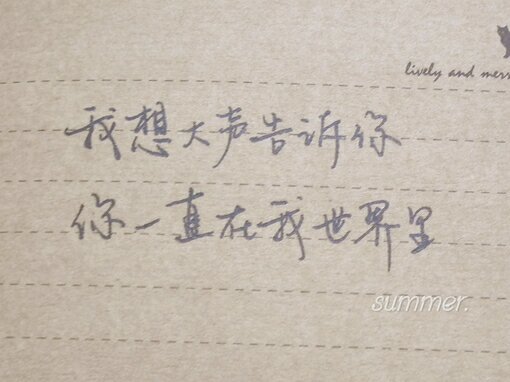 lively and mer
我想大声告诉你
你一直在我世界里
summer.